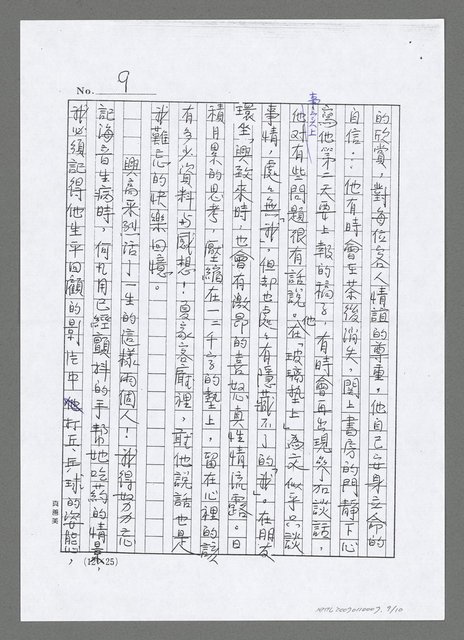 No. 9
的欣賞，對每位客人情誼的尊重，他自己安身立命的
自信…他有時會在茶後消失，關上書房的門靜下心
寫他第二天要上報的稿子，有時會再出現參加談話，
事實上
他對有些問題很有話說。在「玻璃墊上」為文似乎只談
他
事情，處處「無我」，但却也處處有隱藏不了的「我」。在朋友
環坐，興致來時，也會有激昂的喜怒真性情流露。日
積月累的思考，壓縮在一二千字的墊上，留在心裡的該
有多少資料與感想！夏家客廳裡，聽他說話也是
我難忘的快樂回憶。
興高采烈活了一生的這樣兩個人！我得努力忘
記海音生病時，何凡用已經顫抖的手幫她吃葯的情景，
我必須記得他生平回顧的影片中打乒乓球的姿態，
真善美
(12×25)
9/10